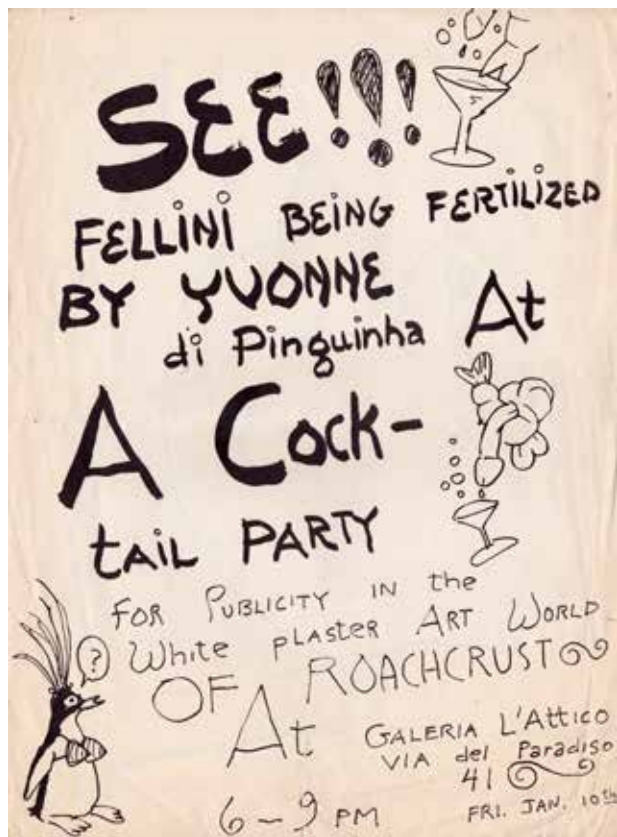 SEE!!!
FELLINI BEING FERTILIZED
BY YVONNE
di Pinguinha At
A Cock-
tAiL PARTY
FOR PUBLICITY IN the
White plasteR ART WORLD
OF ROACHCRUST
At GALERIA L'ATTICO
VIA del Paradiso
41
6-9 PM FRI. JAN. 10th
?